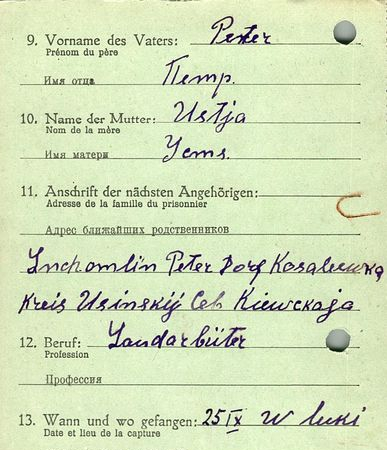 9. Vorname des Vaters: Peter
Prénom du père
Имя отца Петр.
10. Name der Mutter: Ustja
Nom de la mère
Имя матери Устя.
11. Anschrift der nächsten Angehörigen:
Adresse de la famille du prisonnier
Адрес ближайших родственников
Peter Dorf
Kreis Usinskij Kiewskaja
12. Beruf: Landarbeiter
Profession
Профессия
13. Wann und wo gefangen: 25 IX W luki
Date et lieu de la capture